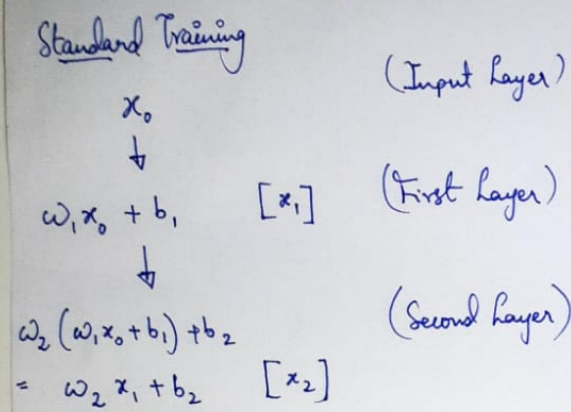 Standard Training
(Input Layer)
x₀
↓
ω₁x₀ + b₁ [x₁] (First Layer)
↓
ω₂(ω₁x₀+b₁)+b₂ (Second Layer)
= ω₂ x₁ + b₂ [x₂]